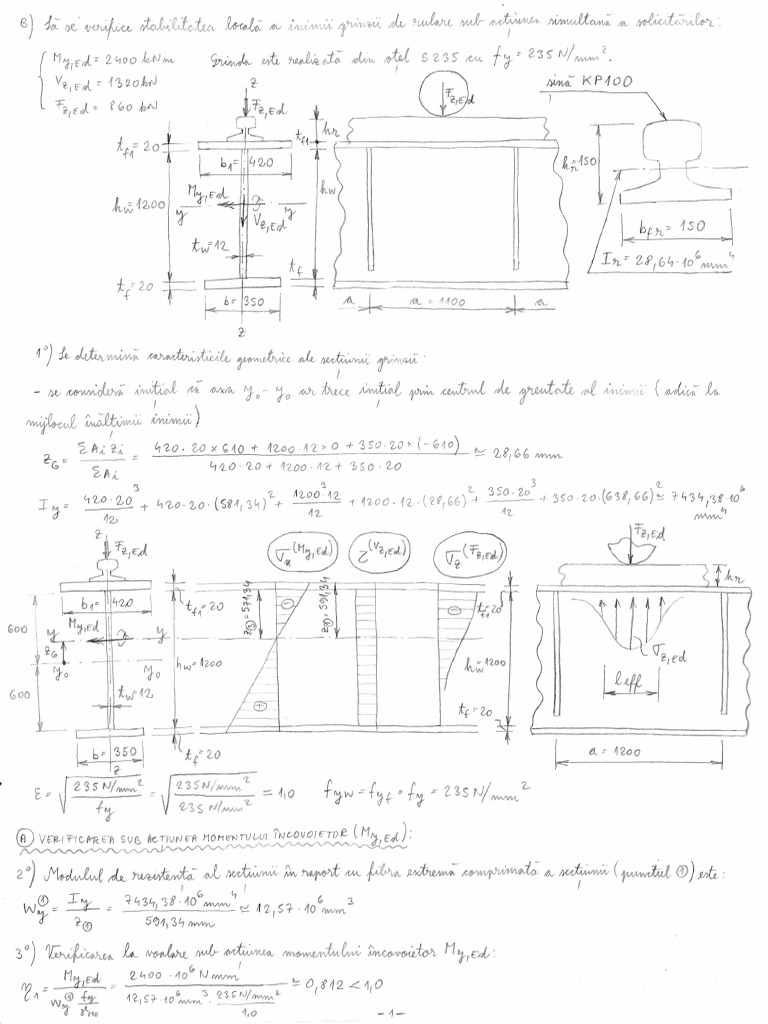 B) Să se verifice stabilitatea locală a inimii grinzii de rulare sub acțiunea simultană a solicitărilor:
My,Ed = 2400 kNm
Vz,Ed = 1320 kN
Fz,Ed = 860 kN
Grinda este realizată din oțel S235 cu fy = 235 N/mm².
z
Fz,Ed
tf1 = 20
b1 = 420
hw = 1200
My,Ed
y
y
Vz,Ed
tw = 12
tf = 20
b = 350
z
Fz,Ed
hr
tf1
hw
tf
a
a = 1100
a
șină KP100
hr = 150
bfr = 150
Ir = 28,64·10⁶ mm⁴
1°) Se determină caracteristicile geometrice ale secțiunii grinzii:
- se consideră inițial că axa y₀-y₀ ar trece inițial prin centrul de greutate al inimii (adică la
mijlocul înălțimii inimii)
zG = ΣAi zi / ΣAi = (420·20×610 + 1200·12×0 + 350·20×(-610)) / (420·20 + 1200·12 + 350·20) ≅ 28,66 mm
Iy = 420·20³/12 + 420·20·(581,34)² + 1200³·12/12 + 1200·12·(28,66)² + 350·20³/12 + 350·20·(638,66)² ≅ 7434,38·10⁶ mm⁴
z
Fz,Ed
b1 = 420
600
My,Ed
y
y
zG
y₀
y₀
600
tw = 12
b = 350
z
tf1 = 20
hw = 1200
tf = 20
σx(My,Ed)
τ(Vz,Ed)
σz(Fz,Ed)
z③ = 571,34
z① = 591,34
tf1 = 20
hw = 1200
tf = 20
Fz,Ed
hr
σz,Ed
leff
a = 1200
ε = √(235 N/mm² / fy) = √(235 N/mm² / 235 N/mm²) = 1,0 fyw = fyf = fy = 235 N/mm²
Ⓐ VERIFICAREA SUB ACȚIUNEA MOMENTULUI ÎNCOVOIETOR (My,Ed):
2°) Modulul de rezistență al secțiunii în raport cu fibra extremă comprimată a secțiunii (punctul ①) este:
Wy① = Iy / z① = 7434,38·10⁶ mm⁴ / 591,34 mm ≅ 12,57·10⁶ mm³
3°) Verificarea la voalare sub acțiunea momentului încovoietor My,Ed:
η1 = My,Ed / (Wy① fy/γM0) = 2400·10⁶ N mm / (12,57·10⁶ mm³ · 235 N/mm² / 1,0) ≅ 0,812 < 1,0
-1-